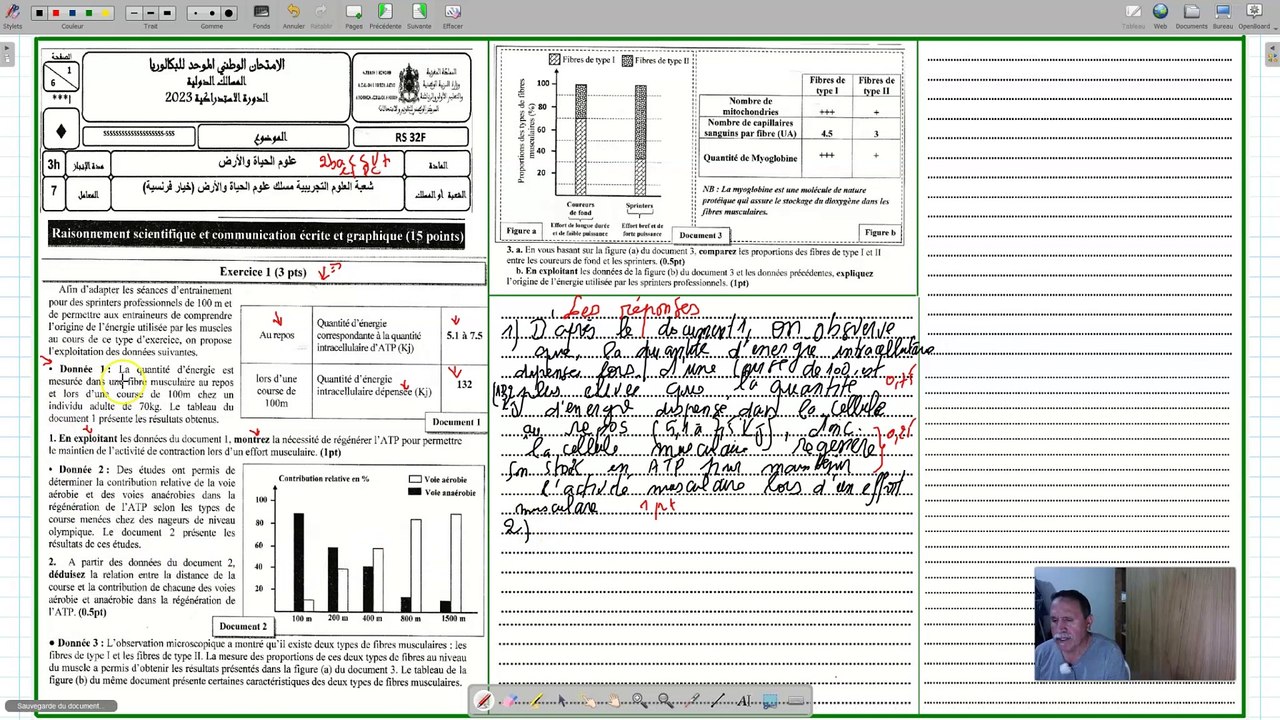 Stylets
Couleur
Trait
Gomme
Fonds
Annuler
Rétablir
Pages
Précédente
Suivante
Effacer
Tableau
Web
Documents
Bureau
OpenBoard
الصفحة
1
6
الامتحان الوطني الموحد للبكالوريا
المسالك الدولية
الدورة الاستدراكية 2023
SSSSSSSSSSSSSSSSSSSS-SSS
الموضوع
RS 32F
3h
مدة الإنجاز
علوم الحياة والأرض
المادة
7
المعامل
شعبة العلوم التجريبية مسلك علوم الحياة والأرض (خيار فرنسية)
الشعبة أو المسلك
Raisonnement scientifique et communication écrite et graphique (15 points)
Exercice 1 (3 pts)
Afin d'adapter les séances d'entrainement
pour des sprinters professionnels de 100 m et
de permettre aux entraineurs de comprendre
l'origine de l'énergie utilisée par les muscles
au cours de ce type d'exercice, on propose
l'exploitation des données suivantes.
Donnée 1 : La quantité d'énergie est
mesurée dans une fibre musculaire au repos
et lors d'une course de 100m chez un
individu adulte de 70kg. Le tableau du
document 1 présente les résultats obtenus.
Au repos
Quantité d'énergie
correspondante à la quantité
intracellulaire d'ATP (Kj)
5.1 à 7.5
lors d'une
course de
100m
Quantité d'énergie
intracellulaire dépensée (Kj)
132
Document 1
1. En exploitant les données du document 1, montrez la nécessité de régénérer l'ATP pour permettre
le maintien de l'activité de contraction lors d'un effort musculaire. (1pt)
• Donnée 2 : Des études ont permis de
déterminer la contribution relative de la voie
aérobie et des voies anaérobies dans la
régénération de l'ATP selon les types de
course menées chez des nageurs de niveau
olympique. Le document 2 présente les
résultats de ces études.
2. A partir des données du document 2,
déduisez la relation entre la distance de la
course et la contribution de chacune des voies
aérobie et anaérobie dans la régénération de
l'ATP. (0.5pt)
Contribution relative en %
Voie aérobie
Voie anaérobie
100
80
60
40
20
100 m
200 m
400 m
800 m
1500 m
Document 2
• Donnée 3 : L'observation microscopique a montré qu'il existe deux types de fibres musculaires : les
fibres de type I et les fibres de type II. La mesure des proportions de ces deux types de fibres au niveau
du muscle a permis d'obtenir les résultats présentés dans la figure (a) du document 3. Le tableau de
la figure (b) du même document présente certaines caractéristiques des deux types de fibres musculaires.
Sauvegarde du document...
Fibres de type I
Fibres de type II
Proportions des types de fibres
musculaires (%)
100
80
60
40
20
Coureurs
de fond
Sprinters
Effort de longue durée
et de faible puissance
Effort bref et de
forte puissance
Figure a
Document 3
Fibres de
type I
Fibres de
type II
Nombre de
mitochondries
+++
+
Nombre de capillaires
sanguins par fibre (UA)
4.5
3
Quantité de Myoglobine
+++
+
NB : La myoglobine est une molécule de nature
protéique qui assure le stockage du dioxygène dans les
fibres musculaires.
Figure b
3. a. En vous basant sur la figure (a) du document 3, comparez les proportions des fibres de type I et II
entre les coureurs de fond et les sprinters. (0.5pt)
b. En exploitant les données de la figure (b) du document 3 et les données précédentes, expliquez
l'origine de l'énergie utilisée par les sprinters professionnels. (1pt)
Les réponses
1) D'après le document 1, on observe
que, la quantité d'energie intracellulaire
dépensée lors d'une course de 100 est
plus elevee que la quantité 0,75
d'energie dispense dans la cellule
au repos (5,1 à 7,5 Kj), donc 0,25
la cellule musculaire regenere
son stock en ATP pour maintenir
l'activité musculaire lors d'un effort
musculaire 1 pt
2.)